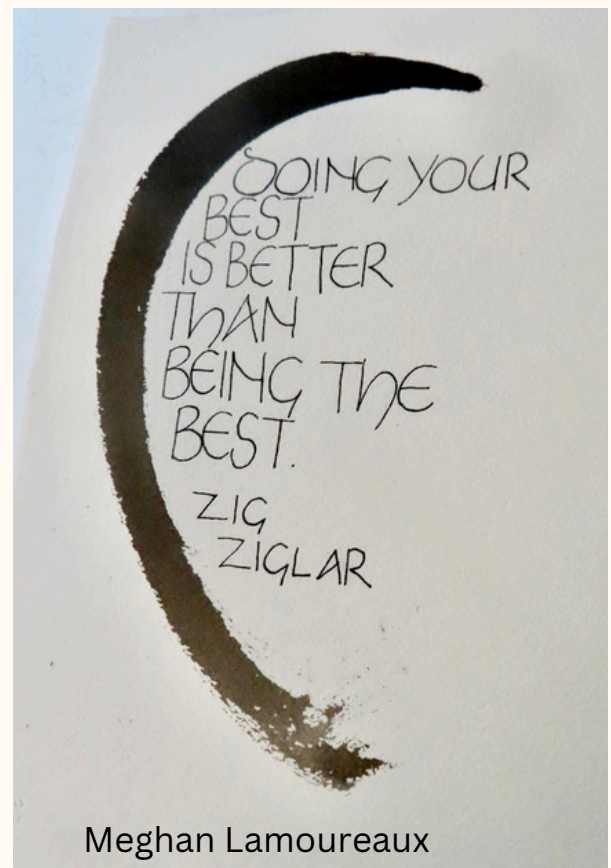 DOING YOUR
BEST
IS BETTER
THAN
BEING THE
BEST.
ZIG
ZIGLAR
Meghan Lamoureaux